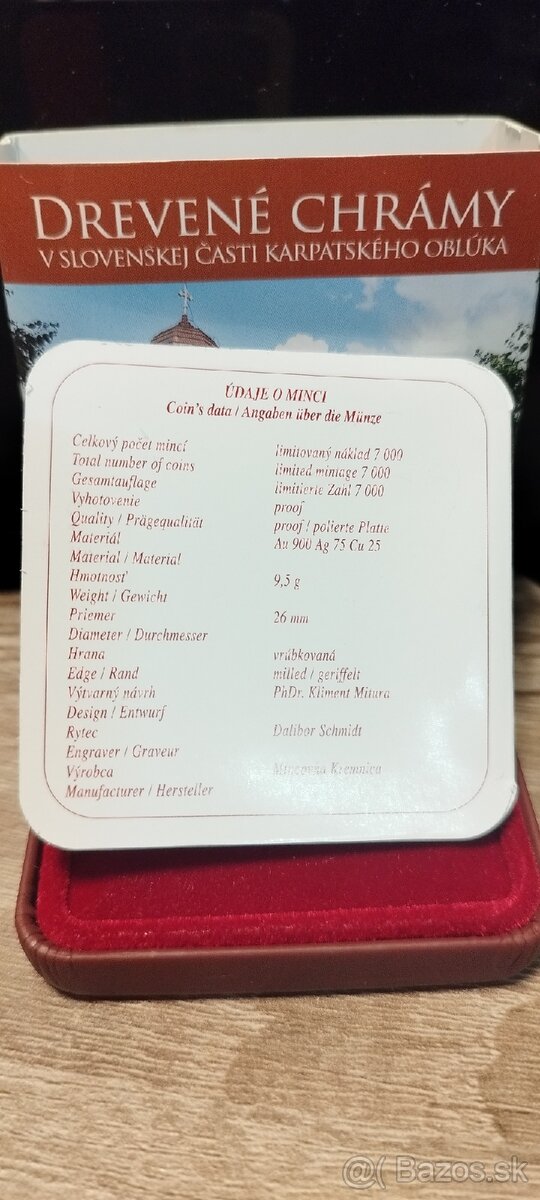 DREVENÉ CHRÁMY
V SLOVENSKEJ ČASTI KARPATSKÉHO OBLÚKA
ÚDAJE O MINCI
Coin's data / Angaben über die Münze
Celkový počet mincí limitovaný náklad 7 000
Total number of coins limited mintage 7 000
Gesamtauflage limitierte Zahl 7 000
Vyhotovenie proof
Quality / Prägequalität proof / polierte Platte
Materiál Au 900 Ag 75 Cu 25
Material / Material
Hmotnosť 9,5 g
Weight / Gewicht
Priemer 26 mm
Diameter / Durchmesser
Hrana vrúbkovaná
Edge / Rand milled / geriffelt
Výtvarný návrh PhDr. Kliment Mitura
Design / Entwurf
Rytec Dalibor Schmidt
Engraver / Graveur
Výrobca Mincovňa Kremnica
Manufacturer / Hersteller
@( Bazos.sk